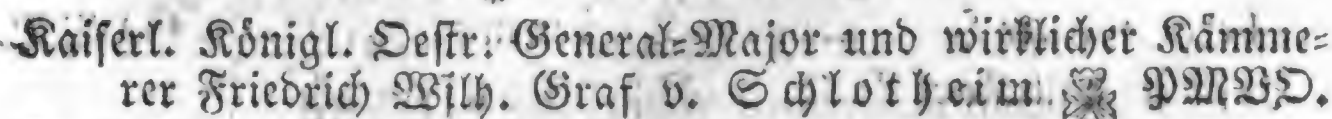 Kaiserl. Königl. Oestr. General-Major und wirklicher Kämme-
rer Friedrich Wilh. Graf v. Schlotheim. PMVO.